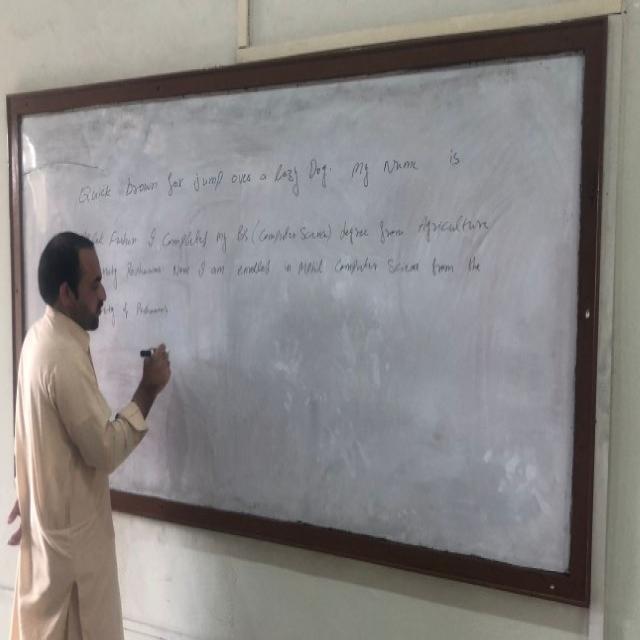 Quick brown fox jump over a lazy Dog. My Name is
I Completed my BS (Computer Science) degree from Agriculture
Peshawar Now I am enrolled in Mphil Computer Science from the
of Peshawar